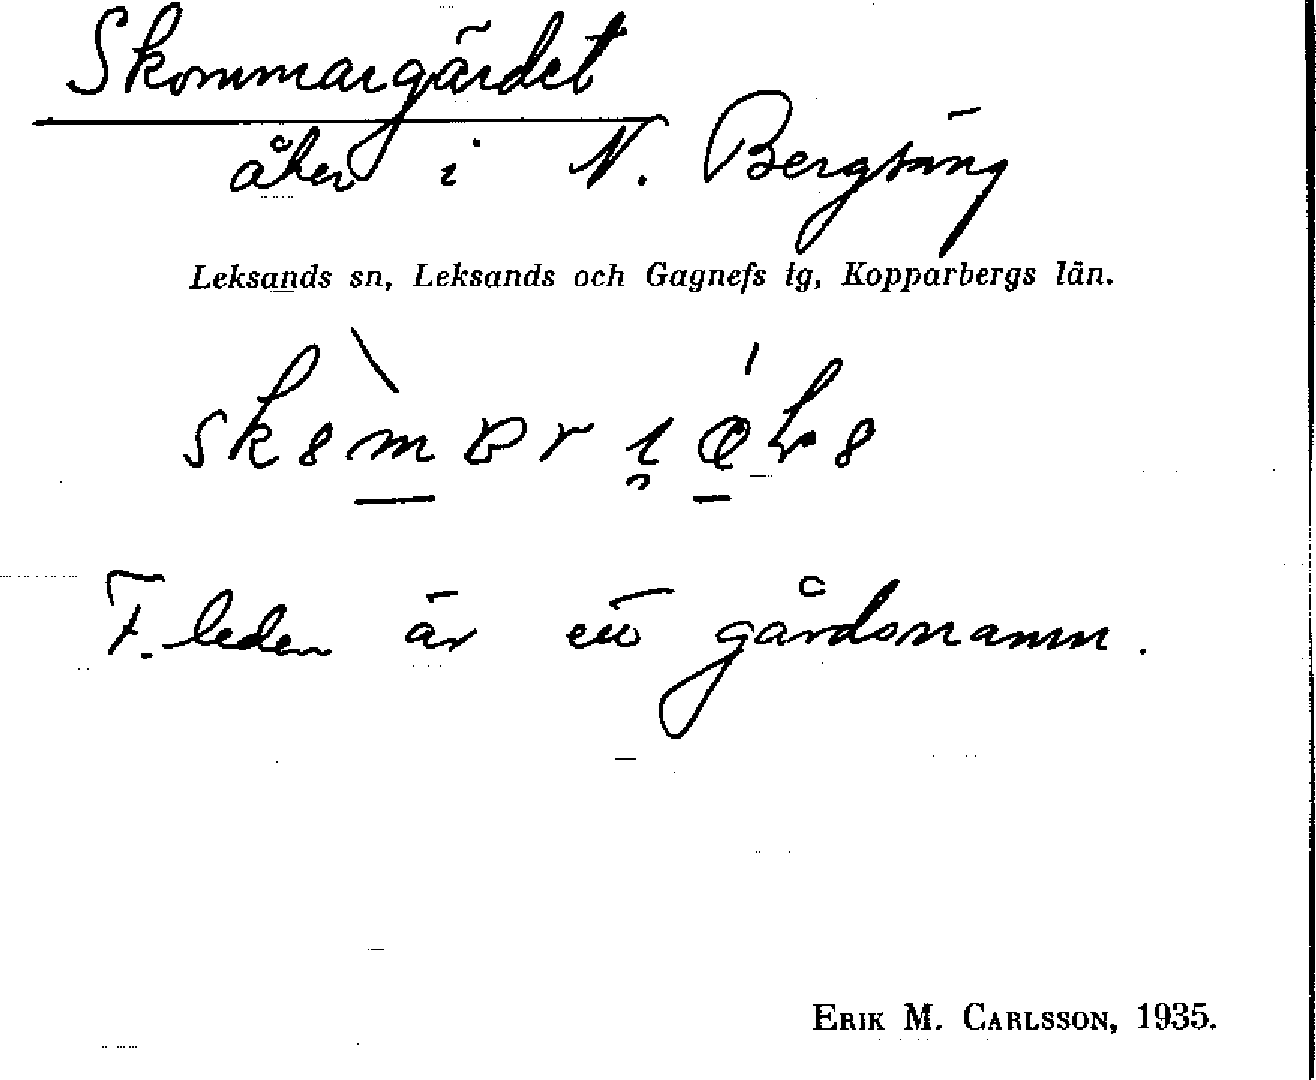 Skommargärdet
åker i N. Bergsäng
Leksands sn, Leksands och Gagnefs tg, Kopparbergs län.
F. leden är ett gårdsnamn.
ERIK M. CARLSSON, 1935.